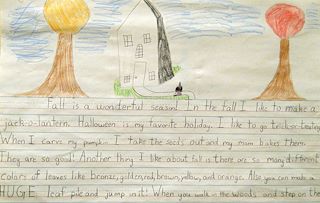 Fall is a wonderful season! In the fall I like to make a
jack-o-lantern. Halloween is my favorite holiday. I like to go trick-or-treating.
When I carve my pumpkin I take the seeds out and my mom bakes them.
They are so good! Another thing I like about fall is there are so many different
colors of leaves like bronze, golden, red, brown, yellow, and orange. Also you can make a
HUGE leaf pile and jump in it! When you walk in the woods and step on the